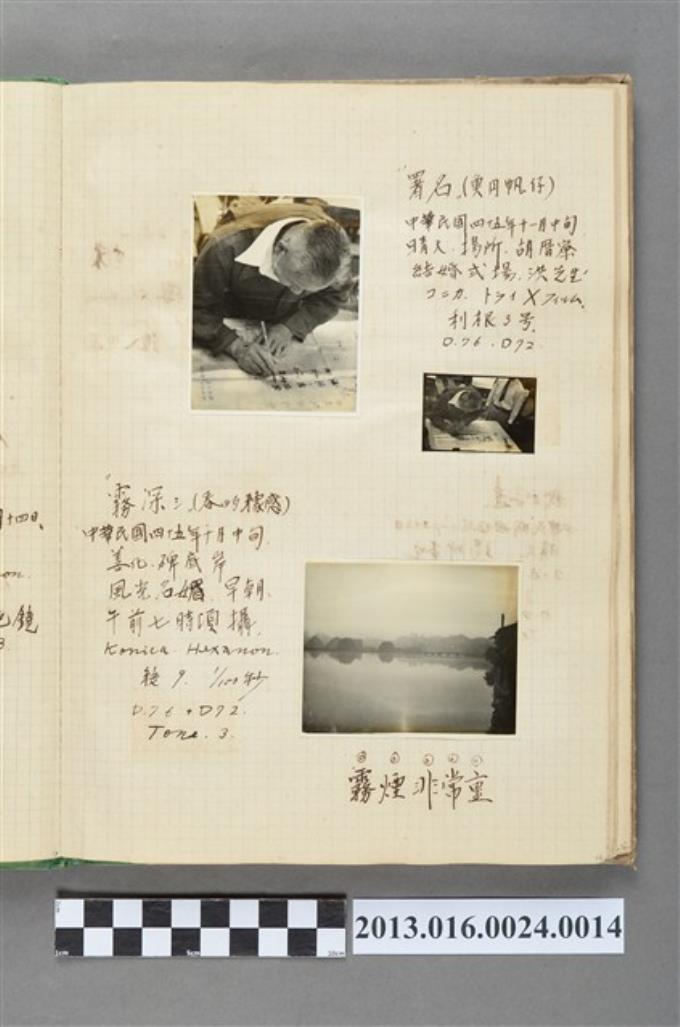 署名、(奧円帆仔)
中華民國四十五年十一月中旬
晴天、場所、胡厝寮
結婚式場、洪先生
コニカ、トライXフィルム、
利根3号、
D.76、D72.
霧深ミ、(春的穣感)
中華民國四十五年十月中旬
善化、碑底岸
風光名媚、早朝、
午前七時頃攝、
Konica. Hexanon.
絞9. 1/100秒
D.76 + D72.
Tone. 3.
霧煙非常重
月十四日、
on.
色鏡
3.
2013.016.0024.0014
1cm
5cm
10cm